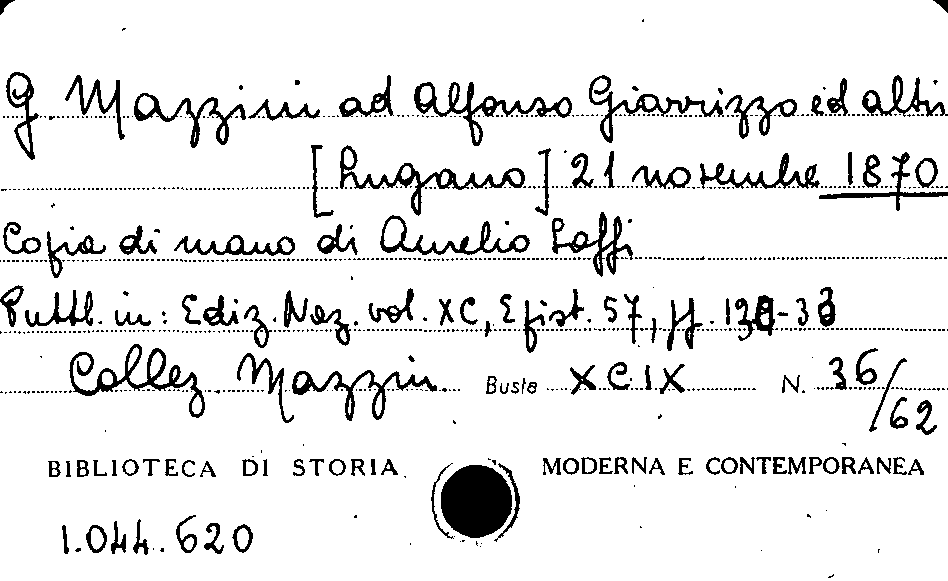 G. Mazzini ad Alfonso Giarrizzo ed altri
[Lugano] 21 novembre 1870
Copia di mano di Aurelio Saffi
Pubbl. in: Ediz. Naz. vol. XC, Epist. 57, pp.
Collez. Mazzini Busta XCIX N. 36/62
BIBLIOTECA DI STORIA MODERNA E CONTEMPORANEA
1.044.620